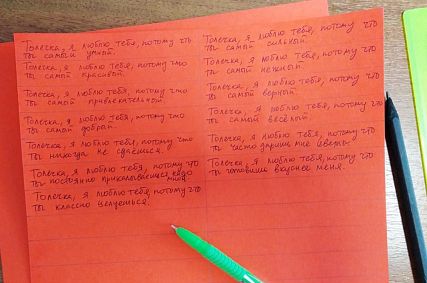 Толечка, я люблю тебя, потому что
ты самый умный.
Толечка, я люблю тебя, потому что
ты самой красивой.
Толечка, я люблю тебя, потому что
ты самой привлекательной.
Толечка, я люблю тебя, потому что
ты самой добрый.
Толечка, я люблю тебя, потому что
ты никогда не сдаёшься.
Толечка, я люблю тебя, потому что
ты постоянно прикалываешься надо
мной.
Толечка, я люблю тебя, потому что
ты классно целуешься.
Толечка, я люблю тебя, потому что
ты самый сильный.
Толечка, я люблю тебя, потому что
ты самой нежный.
Толечка, я люблю тебя, потому что
ты самой верный.
Толечка, я люблю тебя, потому что
ты самой весёлой.
Толечка, я люблю тебя, потому что
ты часто даришь мне цветы.
Толечка, я люблю тебя, потому что
ты готовишь вкуснее меня.